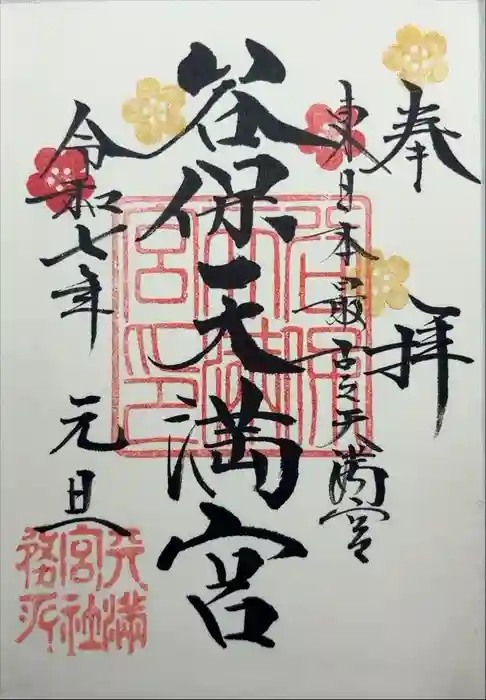 奉拝
東日本最古之天満宮
谷保天満宮
令和七年
元旦
谷保天満宮印
天満宮社務所